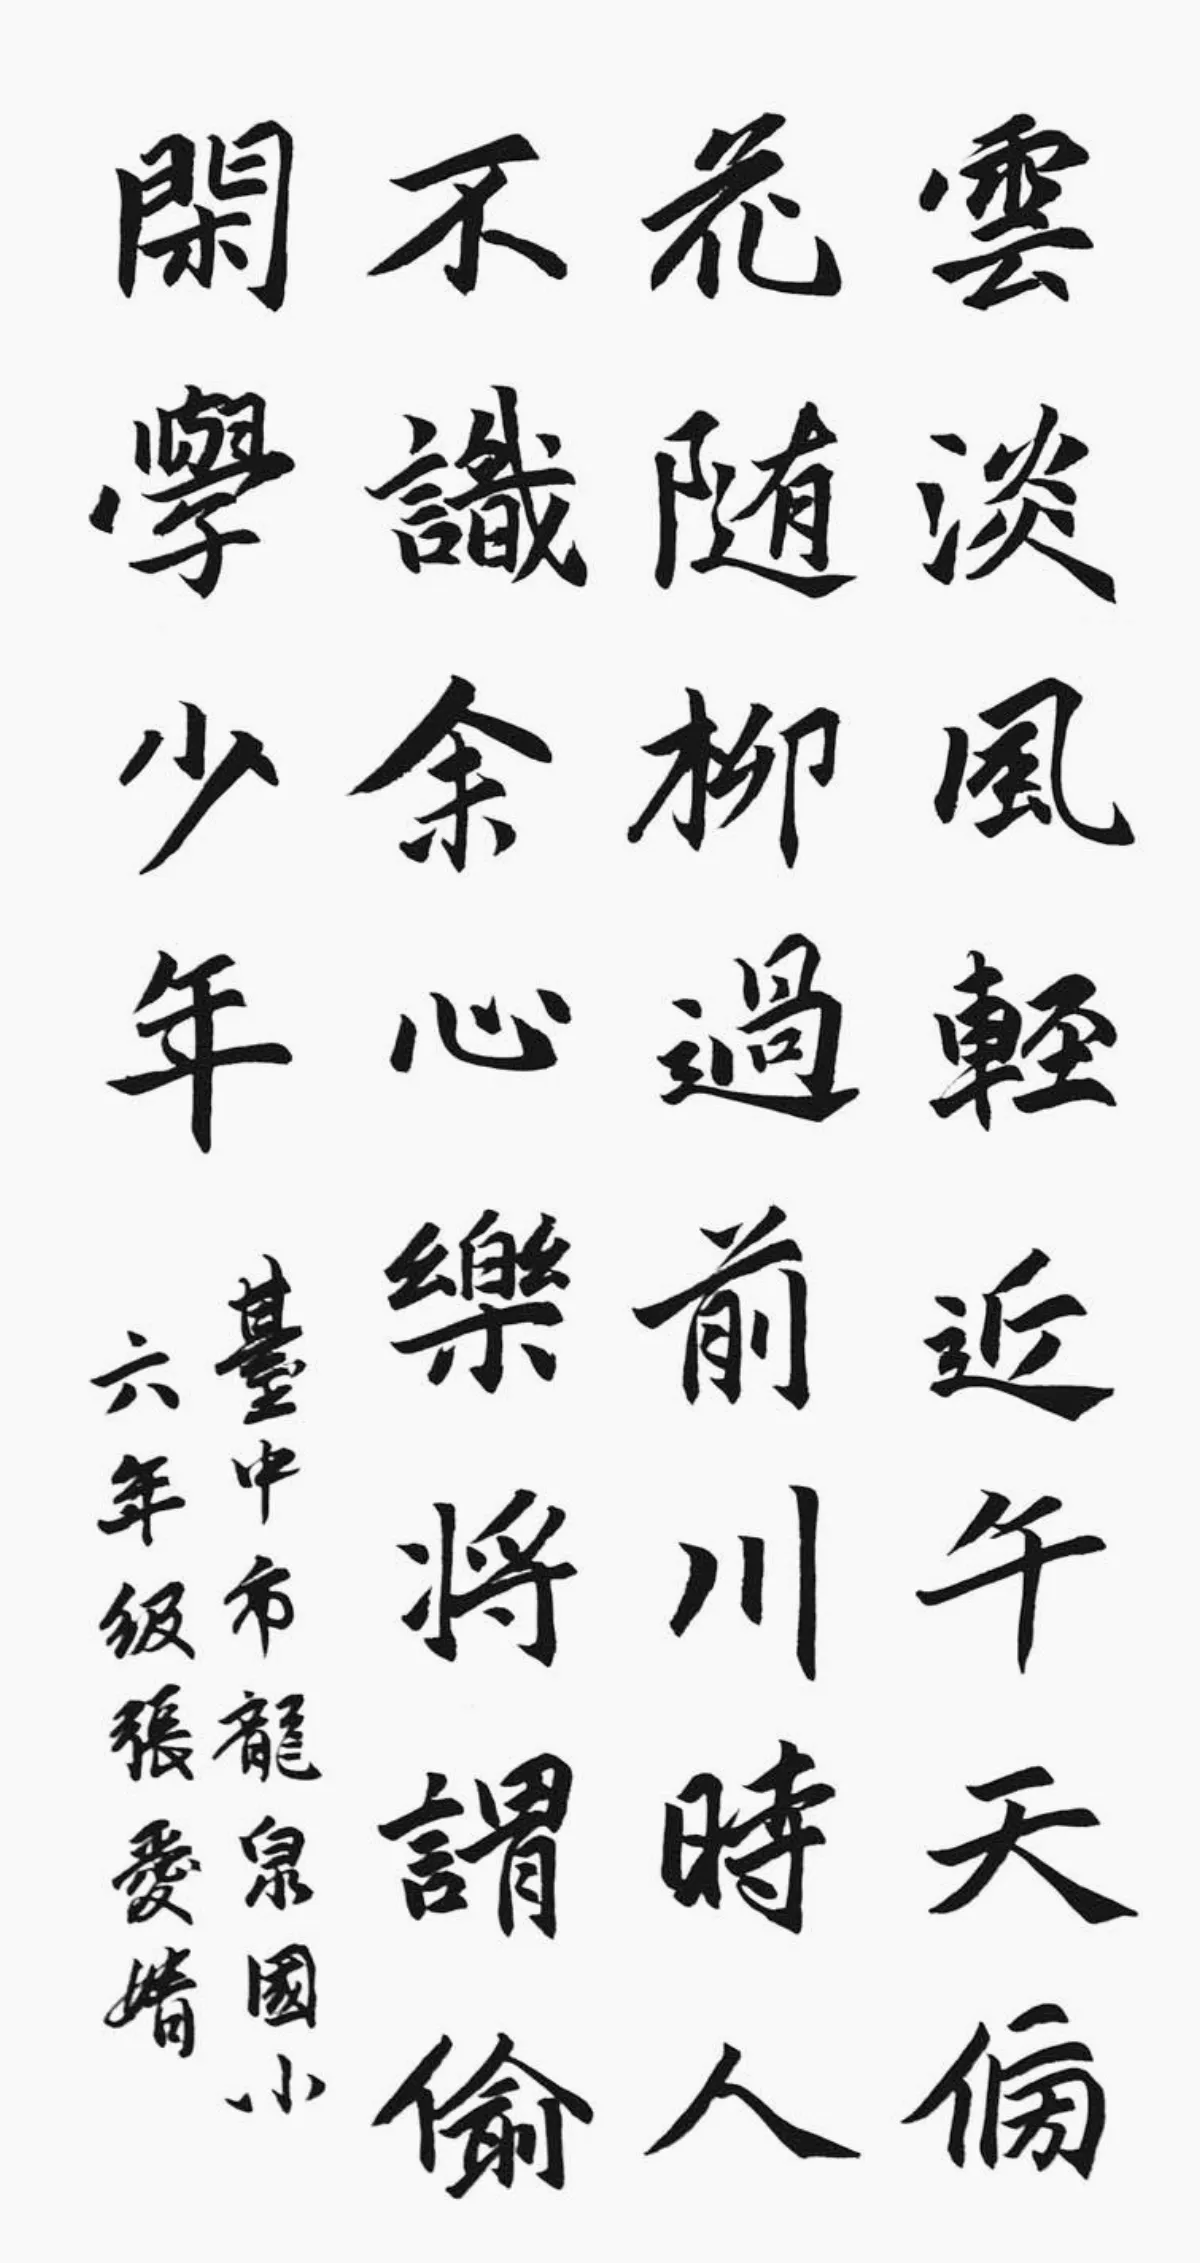 雲淡風輕近午天傍
花随柳過前川時人
不識余心樂將謂偷
閑學少年
臺中市龍泉國小
六年级張愛媋